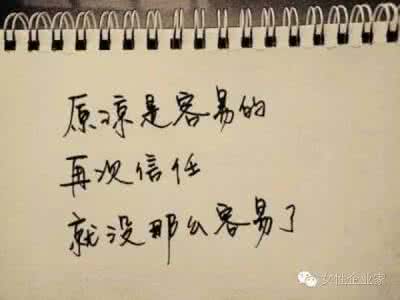 原谅是容易的
再次信任
就没那么容易了
女性企业家